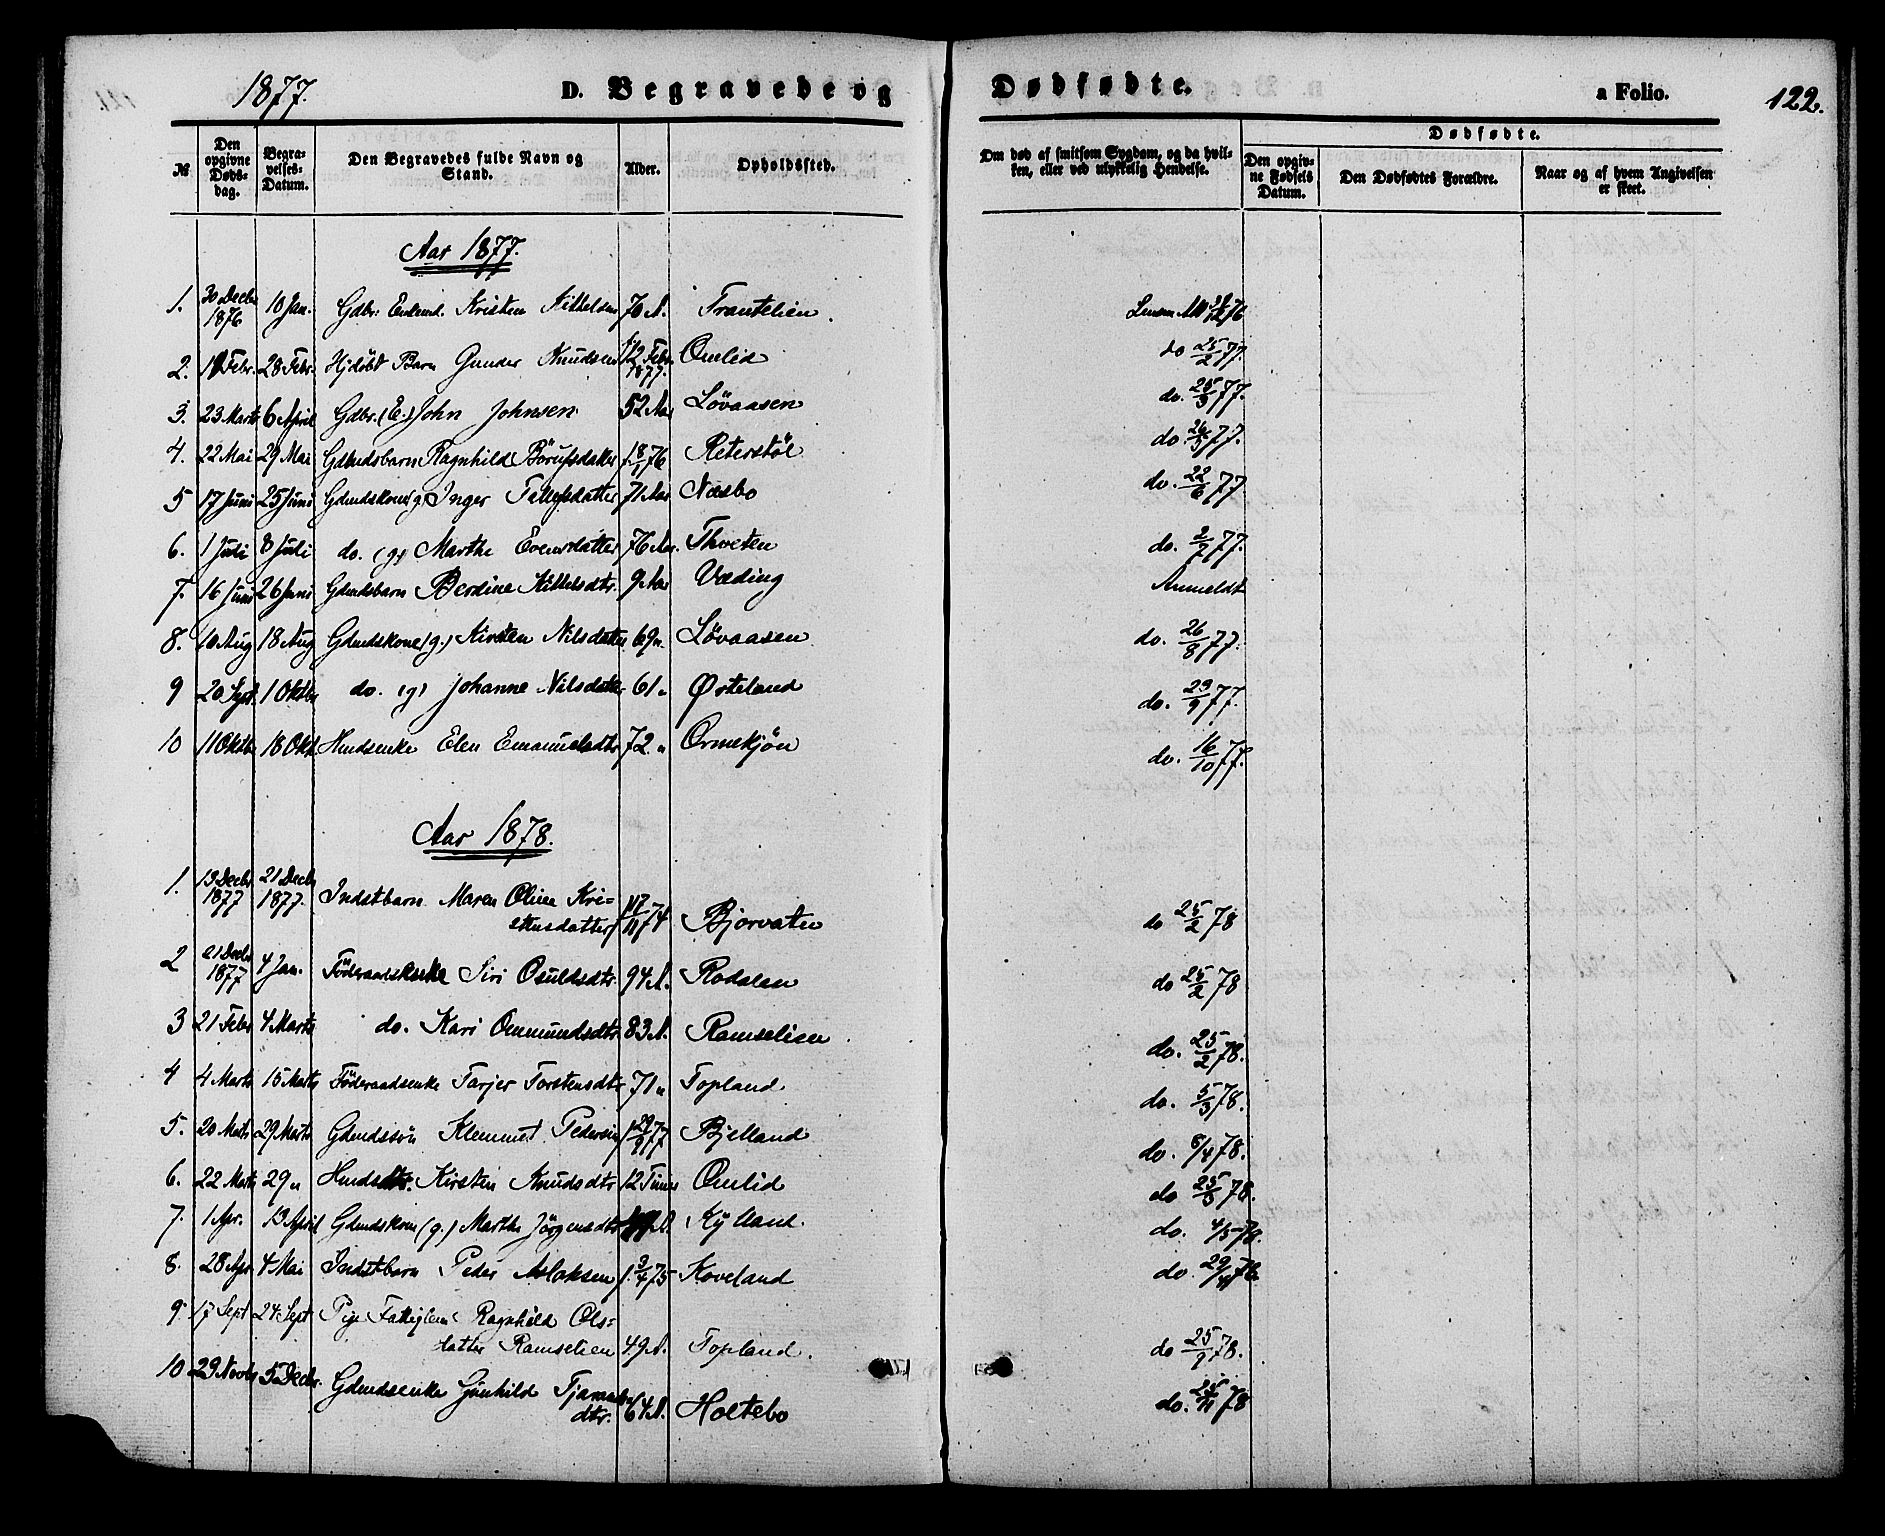 1877. D. Begravede og Dødfødte. a Folio. 122.
№ Den opgivne Døds-dag. Begra-velses-Datum. Den Begravedes fulde Navn og Stand. Alder. Opholdssted. Om død af smitsom Sygdom, og da hvil-ken, eller ved ulykkelig Hendelse. Dødfødte. Den opgiv-ne Fødsels Datum. Den Dødfødtes Forældre. Naar og af hvem Angivelsen er skeet.
Aar 1877.
1. 30 Decbr 1876 10 Jan. Gdbr. Kristen Kittelsen 70 A. Trautelien 76
2. Febr. 28 Febr. Hjdöbt Barn Gunder Knudsen 12 Febr 1877. Omlid do 25/2 77.
3. 23 Marts 6 April Gdbr. (E.) John Johnsen 52 Aar Løvaasen do. 25/3 77.
4. 22 Mai 29 Mai Gdmdsbarn Ragnhild 76 Reterstøl do. 26/5 77.
5 17 Juni 25 Juni Gdmdskone (g.) Inger Tellefsdatter 71 Aar Næsbo do. 22/6 77
6. 1 Juli 8 Juli do. (g) Marthe Evensdatter 76 Aar. Thveten do. 2/7 77.
7. 16 Juni 26 Juni Gdmdsbarn Berdine Kittelsdtr. 9 Aar Væding Anmeldt
8. 10 Aug 18 Aug Gdmdskone (g.) Kirsten Nilsdatter 69 " Løvaasen do. 26/8 77.
9 20 Sept. 1 Oktbr do. (g) Johanne Nilsdatter 61 " Østeland do. 23/9 77.
10 11 Oktbr 18 Okt. Hmdsenke Elen Emanuelsdtr 72 " Ormekjøn do. 16/10 77.
Aar 1878.
1. 13 Decbr 1877 21 Decbr 1877. Indstbarn Maren Oline Kri=
stensdatter 74 Bjorvatn do 25/2 78
2 21 Decbr 1877 4 Jan. Föderaadsenke Siri Osuldsdtr. 94 A. Rodalen do 25/2 78
3 21 Febr 4 Marts do. Kari Ommundsdtr. 83 A. Ramselien do. 25/2 78.
4 4 Marts 15 Marts Föderaadsenke Tarjer Torstensdtr 71 " Topland do. 5/3 78.
5. 20 Marts 29 Marts Gdmdssön Klemmet Pedersen 77 Bjelland do. 6/4 78.
6. 22 Marts 29 " Hmdsdtr. Kirsten Knudsdtr 12 Timer Omlid do 25/3 78.
7. 1 Apr. 13 April Gdmdskone (g.) Marthe Jörgensdtr A. Kylland. do. 4/5 78.
8. 28 Apr 4 Mai Indstbarn Peder Aslaksen f. 3/4 75 Koveland do. 29/4 78
9. 17 Sept 24 Sept Pige Fattiglem Ragnhild Ols=
datter Ramselien 49 A. Topland. do 25/9 78.
10 29 Novbr 5 Decbr. Gdmdsenke Gunhild
dtr. 64 A. Holtebo do. 78